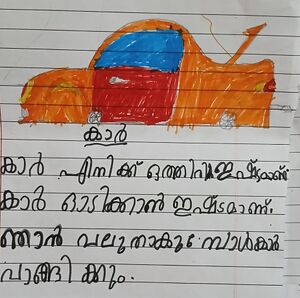 കാർ
കാർ എനിക്ക് ഒത്തിരി ഇഷ്ടമാണ്
കാർ ഓടിക്കാൻ ഇഷ്ടമാണ്.
ഞാൻ പലുതാകുമ്പോൾകാർ
വാങ്ങിക്കും.